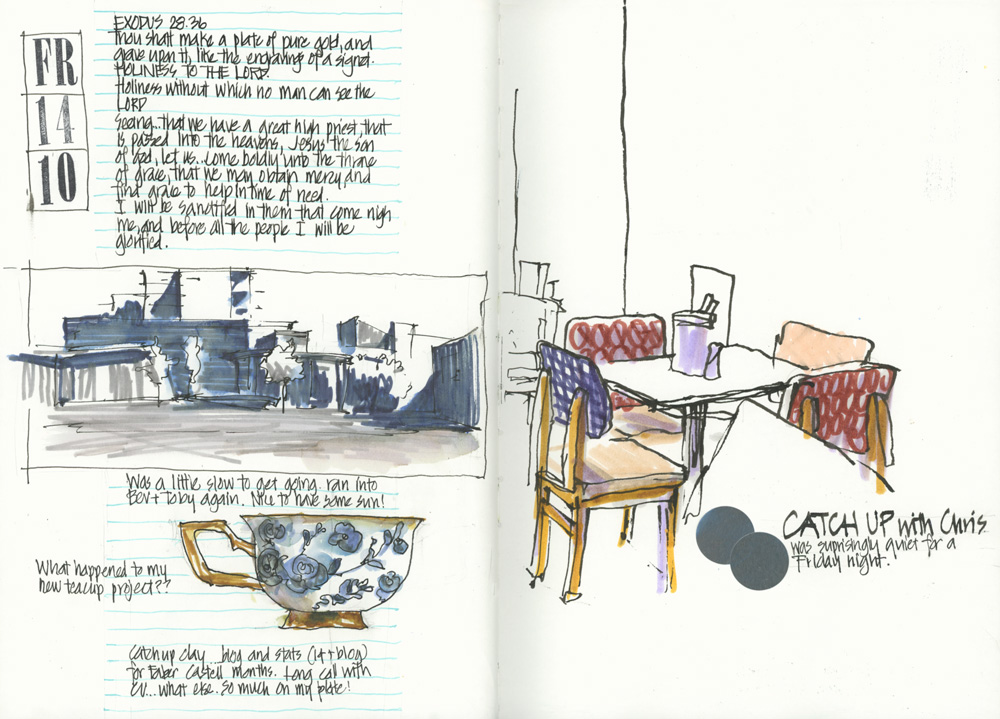 FR
14
10
EXODUS 28.36
Thou shalt make a plate of pure gold, and
grave upon it, like the engravings of a signet.
HOLINESS TO THE LORD.
Holiness without which no man can see the
LORD
Seeing...that we have a great high priest, that
is passed into the heavens, Jesus the son
of God, let us...come boldly unto the throne
of grace, that we may obtain mercy, and
find grace to help in time of need.
I will be sanctified in them that come nigh
me, and before all the people I will be
glorified.
Was a little slow to get going. ran into
Bev + Toby again. Nice to have some sun!
What happened to my
new teacup project??
Catch up day... blog and stats (14 + blog)
for Faber Castell months. Long call with
... what else. so much on my plate!
CATCH UP with Chris
was suprisingly quiet for a
Friday night.